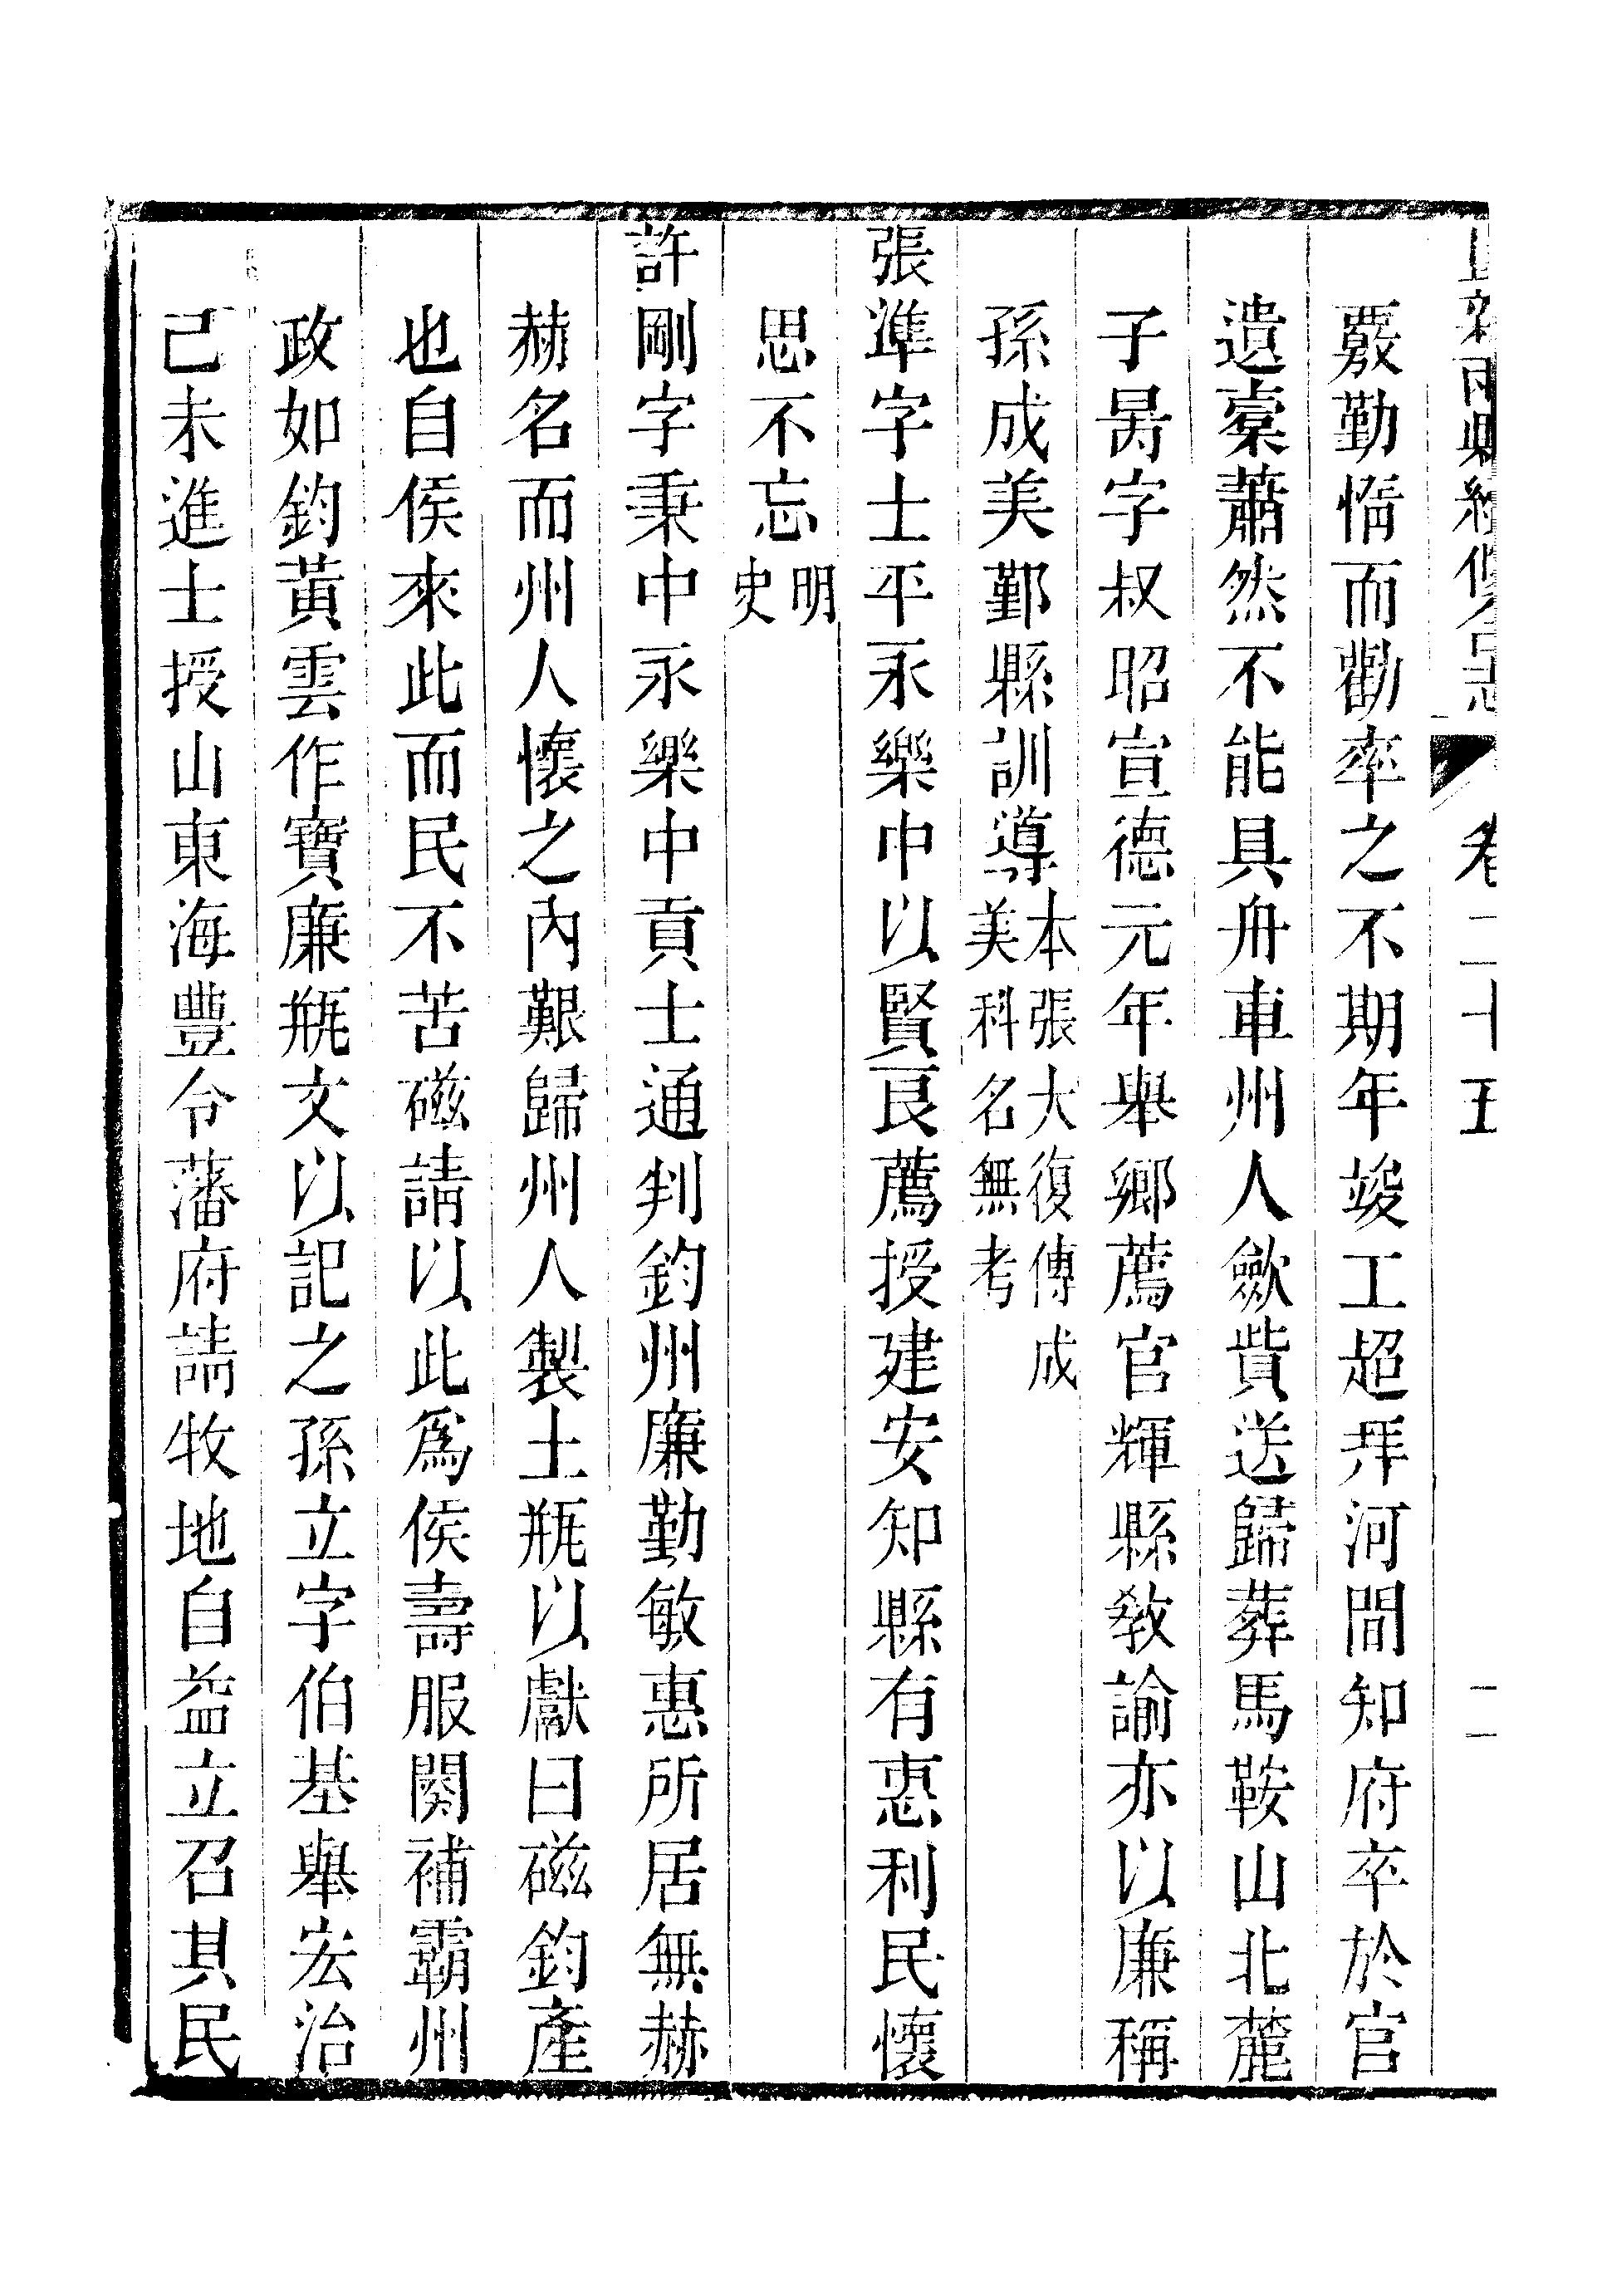 新兩縣續修合志 卷二十五 二
覈勤惰而勸率之不期年竣工超拜河間知府卒於官
遺橐蕭然不能具舟車州人斂貲送歸葬馬鞍山北麓
子昺字叔昭宣德元年舉鄉薦官輝縣敎諭亦以廉稱
孫成美鄞縣訓導本張大復傳成
美科名無考
張準字士平永樂中以賢良薦授建安知縣有惠利民懷
思不忘明
史
許剛字秉中永樂中貢士通判鈞州廉勤敏惠所居無赫
赫名而州人懷之內艱歸州人製土瓶以獻曰磁鈞產
也自侯來此而民不苦磁請以此爲侯壽服闋補霸州
政如鈞黃雲作寶廉瓶文以記之孫立字伯基舉宏治
己未進士授山東海豐令藩府請牧地自益立召其民